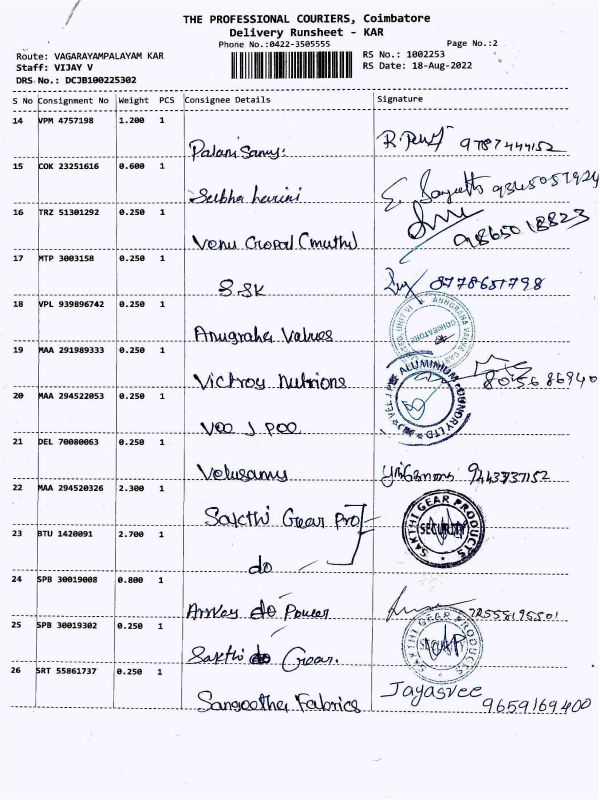 THE PROFESSIONAL COURIERS, Coimbatore
Delivery Runsheet - KAR
Phone No.:0422-3505555
Page No.:2
Route: VAGARAYAMPALAYAM KAR
Staff: VIJAY V
DRS No.: DCJB100225302
RS No.: 1002253
RS Date: 18-Aug-2022
S No Consignment No Weight PCS Consignee Details Signature
14 VPM 4757198 1.200 1
Palani Samy. 9787444152
15 COK 23251616 0.600 1
Subha harini
16 TRZ 51301292 0.250 1
Venu Gopal (muthu) 9865018823
17 MTP 3003158 0.250 1
S.SK 8778651798
18 VPL 939896742 0.250 1
Anugraha Valves
19 MAA 291989333 0.250 1
Victroy Nutrions
20 MAA 294522053 0.250 1
Vee J Pee ALUMINIUM FOUNDRY LTD
21 DEL 70080063 0.250 1
Velusamy
22 MAA 294520326 2.300 1
Sakthi Gear Pro SAKTHI GEAR PRODUCTS SECURITY
23 BTU 1420091 2.700 1
do
24 SPB 30019008 0.800 1
Power
25 SPB 30019302 0.250 1
Sakthi Gear. SAKTHI GEAR PRODUCTS
26 SRT 55861737 0.250 1
Sangeetha Fabrics Jayasree 9659169400